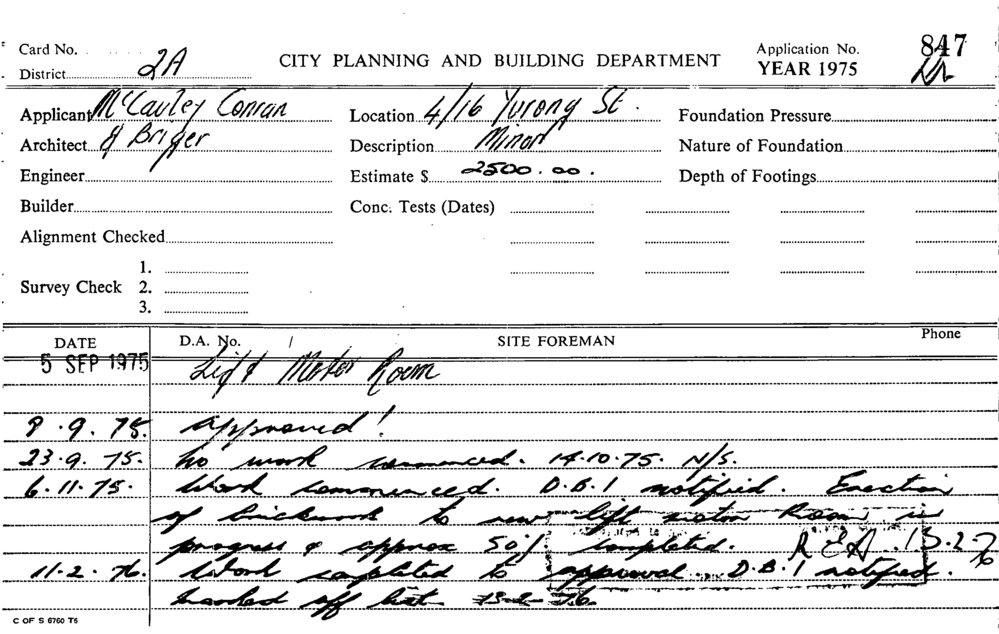 Card No. Application No. 847
District 2A CITY PLANNING AND BUILDING DEPARTMENT YEAR 1975
Applicant McCauley Conran Location 4/16 Yurong St. Foundation Pressure
Architect & Briger Description Minor Nature of Foundation
Engineer Estimate $ 2500.00. Depth of Footings
Builder Conc. Tests (Dates)
Alignment Checked
1.
Survey Check 2.
3.
DATE D.A. No. / SITE FOREMAN Phone
5 SEP 1975 Lift Motor Room
9.9.75. approved!
23.9.75. no work commenced. 14.10.75. N/S.
6.11.75. Work commenced. D.B.I notified. Erection
of brickwork to new lift motor Room is
progress & approx 50% completed. R.E.A. 13.2.76
11.2.76. Work completed to approval. D.B.I notified.
marked off list 13-2-76.
C OF S 6760 T6